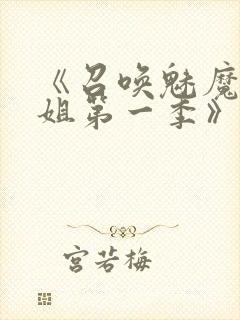 《召唤魅魔
姐第一季》
宫若梅